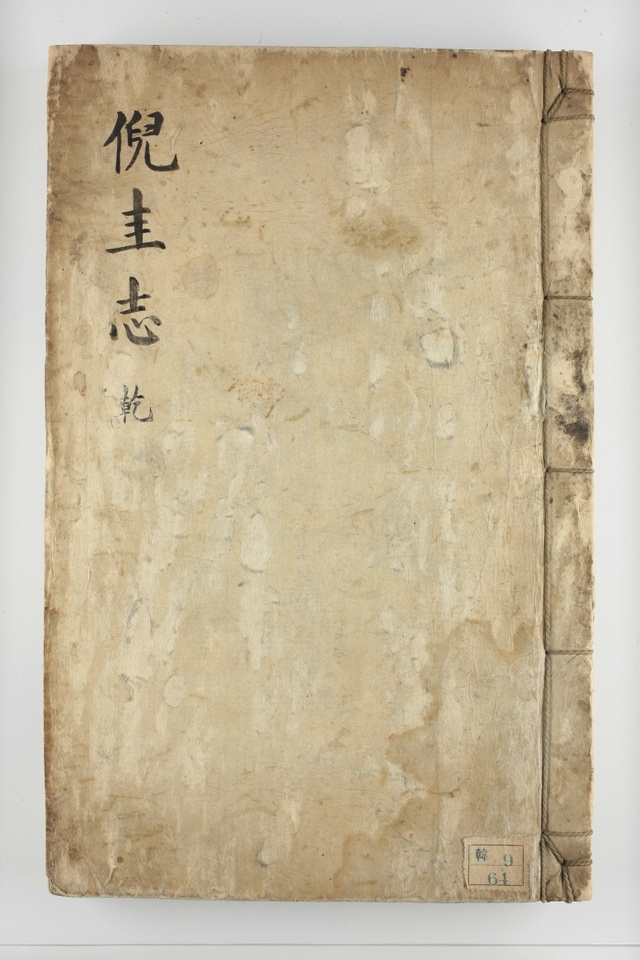 倪圭志 乾
韓 9
64